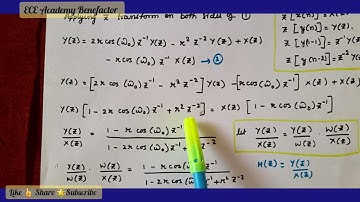 ECE Academy Benefactor
Applying Z transform on both sides of ①
Y(z) = 2r cos(ω̂₀) z⁻¹ Y(z) - r² z⁻² Y(z) + X(z)
- r cos(ω̂₀) z⁻¹ X(z) → ②
Z [x(n)] =
Z [y(n)] = Y(z)
Z [y(n-1)] = z⁻¹ Y
Z [y(n-2)] = z⁻² Y(
Y(z) = [2r cos(ω̂₀) z⁻¹ - r² z⁻²] Y(z) - [r cos(ω̂₀) z⁻¹] X(z) + X(z)
Y(z) [1 - 2r cos(ω̂₀) z⁻¹ + r² z⁻²] = X(z) [1 - r cos(ω̂₀) z⁻¹]
Y(z)/X(z) = 1 - r cos(ω̂₀) z⁻¹ / 1 - 2r cos(ω̂₀) z⁻¹
let Y(z)/X(z) = Y(z)/W(z) · W(z)/X(z)
∴ Y(z)/W(z) · W(z)/X(z) = 1 - r cos(ω̂₀) z⁻¹ / 1 - 2r cos(ω̂₀) z⁻¹ + r² z⁻²
H(z) = Y(z)/X(z)
Like Share Subscribe